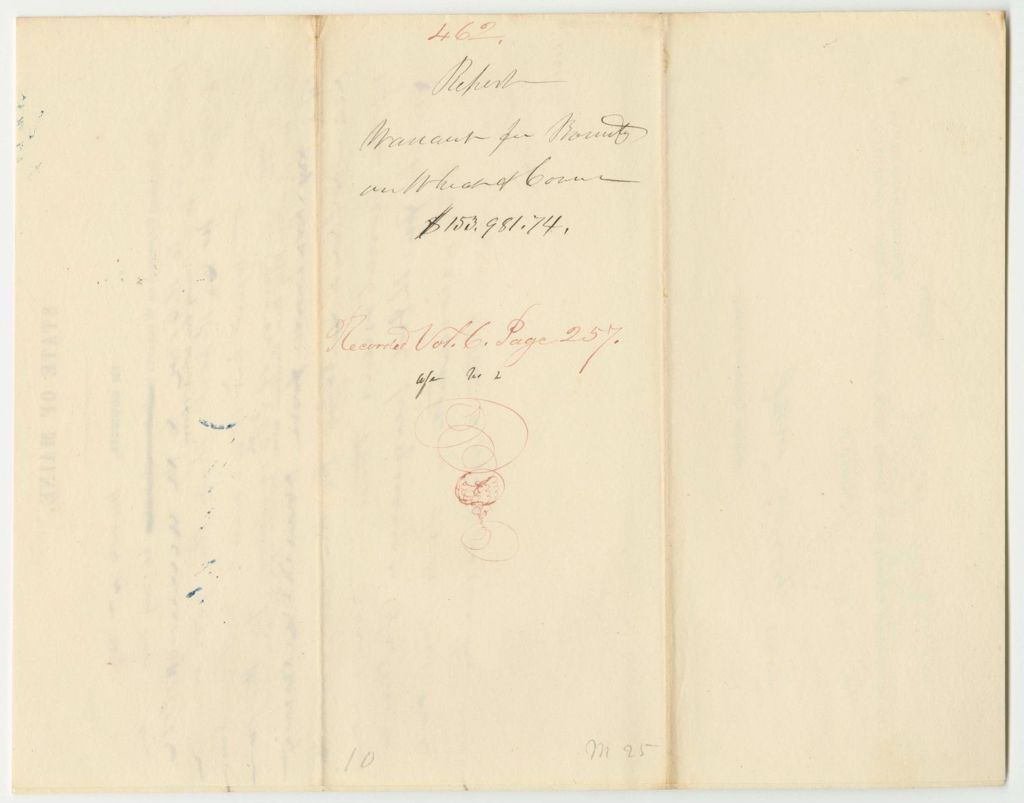 462.
Report
Warrant for Bounty
on Wheat & Corn
$153.981.74.
Recorded Vol. 6. Page 257.
No 2
10
M 25
STATE OF MAINE.